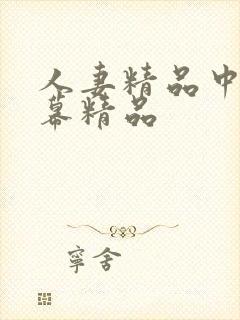 人妻精品中
幕精品
寧舍